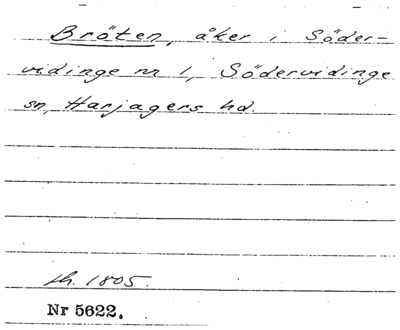 Bröten, åker i Söder-
vidinge nr 1, Södervidinge
sn, Harjagers hd.
1805.
Nr 5622.